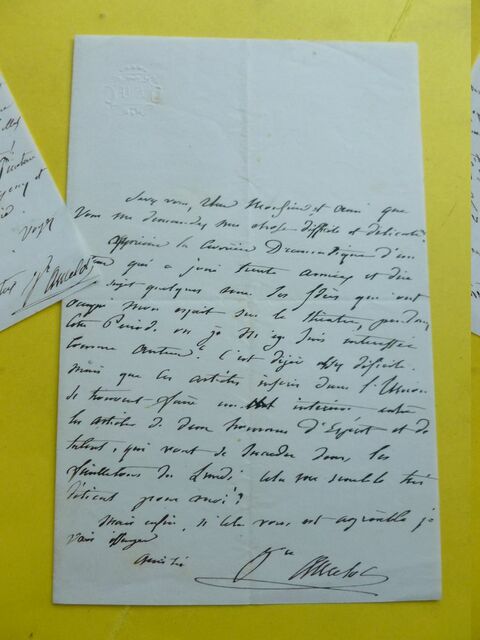 Savez vous, cher Monsieur et ami que
vous me demandez une chose difficile et délicate?
apprécier la carrière Dramatique d'un
qui a joui trente années et dire
sujet quelques unes des idées que
occupé mon esprit sur le théâtre, pendant
cette Période où je m'y suis intéressée
comme auteur. C'est déjà difficile.
mais que ces articles insérés dans l'Union
se trouvent faire un intérim entre
les articles de deux hommes d'Esprit et de
talent, qui vont se succéder dans les
feuilletons du Lundi cela vous semble très
délicat pour moi?
Mais enfin, si cela vous est agréable je
vais essayer
amitié
Vie Ancelot
voyez
Ancelot